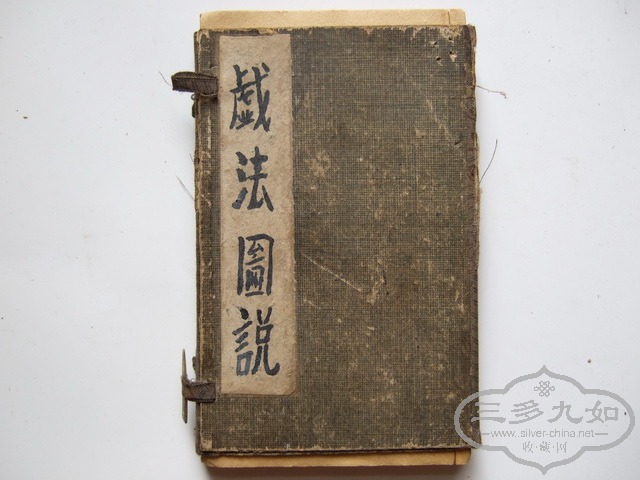 戯法圖説
三多九如
www.silver-china.net
收·藏·网